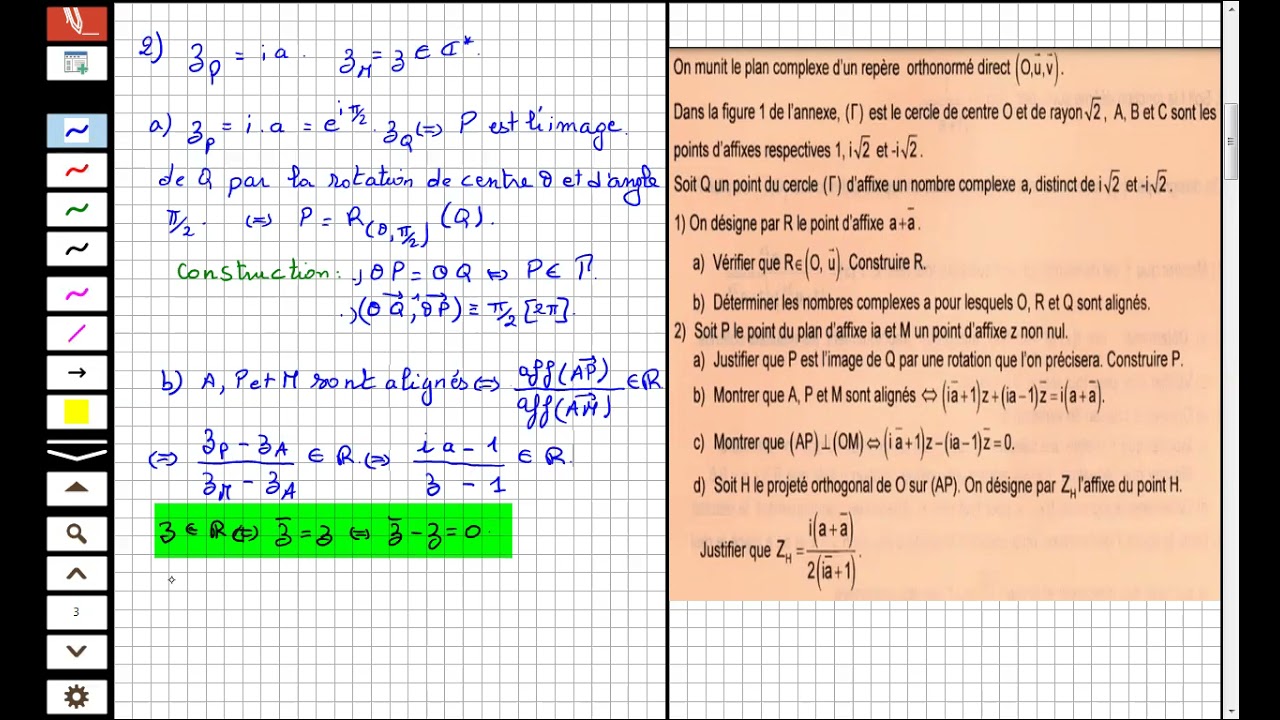 2) z_P = ia. z_M = z ∈ ℂ*.
a) z_P = i.a = e^{iπ/2}. z_Q ⟺ P est l'image
de Q par la rotation de centre O et d'angle
π/2. ⟺ P = R_(O,π/2) (Q).
Construction: ., OP = OQ ⟺ P ∈ Γ.
., (OQ→, OP→) ≡ π/2 [2π].
b) A, P et M sont alignés ⟺ aff(AP→)/aff(AM→) ∈ ℝ
⟺ (z_P - z_A)/(z_M - z_A) ∈ ℝ. ⟺ (ia - 1)/(z - 1) ∈ ℝ.
z ∈ ℝ ⟺ z̄ = z ⟺ z̄ - z = 0.
3
On munit le plan complexe d'un repère orthonormé direct (O,u→,v→).
Dans la figure 1 de l'annexe, (Γ) est le cercle de centre O et de rayon √2, A, B et C sont les
points d'affixes respectives 1, i√2 et -i√2.
Soit Q un point du cercle (Γ) d'affixe un nombre complexe a, distinct de i√2 et -i√2.
1) On désigne par R le point d'affixe a+ā.
a) Vérifier que R∈(O, u→). Construire R.
b) Déterminer les nombres complexes a pour lesquels O, R et Q sont alignés.
2) Soit P le point du plan d'affixe ia et M un point d'affixe z non nul.
a) Justifier que P est l'image de Q par une rotation que l'on précisera. Construire P.
b) Montrer que A, P et M sont alignés ⇔ (iā+1)z+(ia−1)z̄=i(a+ā).
c) Montrer que (AP)⊥(OM)⇔(iā+1)z−(ia−1)z̄=0.
d) Soit H le projeté orthogonal de O sur (AP). On désigne par Z_H l'affixe du point H.
Justifier que Z_H = i(a+ā)/2(iā+1).